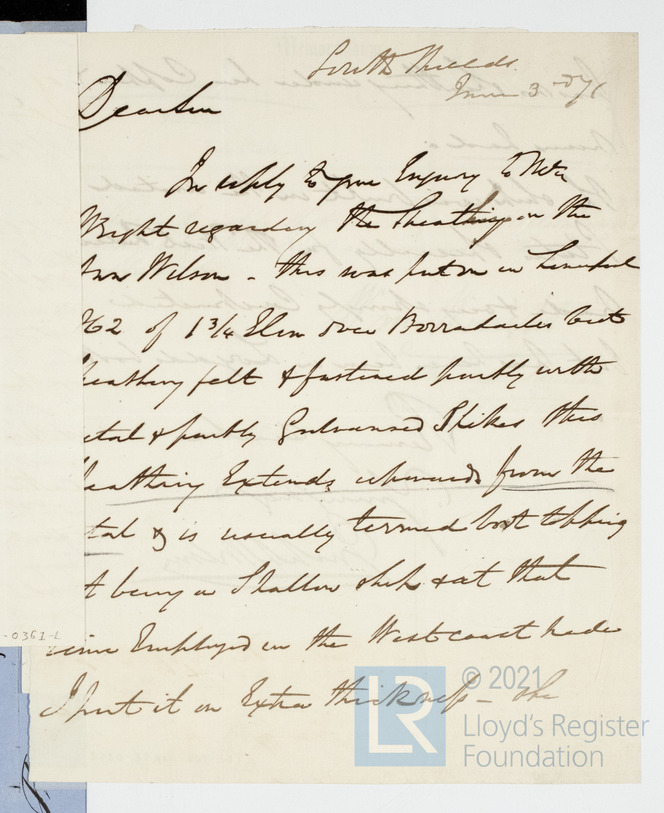 South Shields
June 3rd 71
Dear Sir
In reply to your Enquiry to Mr
Wright regarding the Sheathing on the
Ann Wilson - this was put on in
62 of 1 3/4 Elm over Borradailes best
heathing felt & fastened partly with
etal & partly Galvanised Spikes this
heathing Extends upwards from the
tal & is usually termed boot topping
t being a Shallow ship & at that
time Employed in the West coast trade
I put it on Extra thickness - the
-0361-L
LR © 2021
Lloyd's Register
Foundation